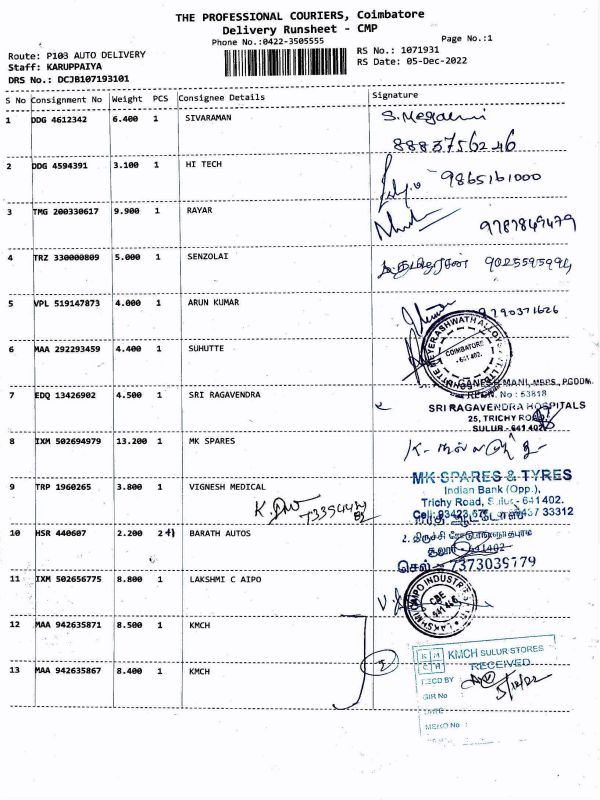 THE PROFESSIONAL COURIERS, Coimbatore
Delivery Runsheet - CMP
Phone No.:0422-3505555
Page No.:1
Route: P103 AUTO DELIVERY
RS No.: 1071931
Staff: KARUPPAIYA
RS Date: 05-Dec-2022
DRS No.: DCJB107193101
S No Consignment No Weight PCS Consignee Details Signature
1 DDG 4612342 6.400 1 SIVARAMAN
2 DDG 4594391 3.100 1 HI TECH 9865161000
3 TMG 200330617 9.900 1 RAYAR
4 TRZ 330000809 5.000 1 SENZOLAI
5 VPL 519147873 4.000 1 ARUN KUMAR 9790371626
6 MAA 292293459 4.400 1 SUHUTTE
COIMBATORE
- 641 402.
7 EDQ 13426902 4.500 1 SRI RAGAVENDRA
MANI, MBBS., PGDDM.
REGN. No : 53818
SRI RAGAVENDRA HOSPITALS
25, TRICHY ROAD
SULUR - 641 402.
8 IXM 502694979 13.200 1 MK SPARES
MK SPARES & TYRES
Indian Bank (Opp.),
Trichy Road, Sulur - 641 402.
9 TRP 1960265 3.800 1 VIGNESH MEDICAL
10 HSR 440607 2.200 2 BARATH AUTOS
செல் : 7373039779
11 IXM 502656775 8.800 1 LAKSHMI C AIPO
12 MAA 942635871 8.500 1 KMCH
KMCH SULUR STORES
RECEIVED
13 MAA 942635867 8.400 1 KMCH
RECD BY :
5/12/22
GIR No :
DATE :
MEMO No :